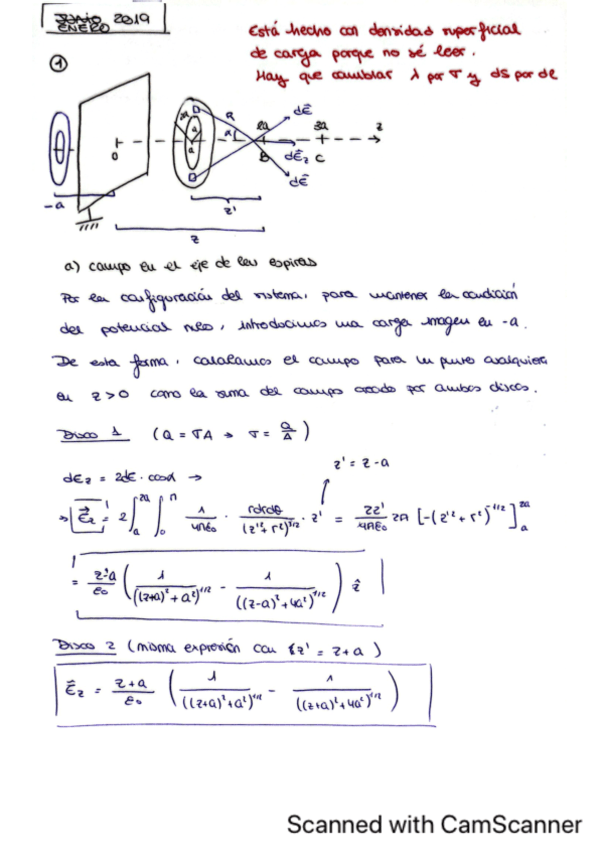 JUNIO 2019
ENERO
Está hecho con densidad superficial
de carga porque no sé leer.
Hay que cambiar λ por σ y ds por dl
①
2a a a R α 2a 3a z
0 B C dE⃗ dE⃗z dE⃗
-a z'
z
a) campo en el eje de las espiras
Por la configuración del sistema, para mantener la condición
del potencial nulo, introducimos una carga imagen en -a.
De esta forma, calculamos el campo para un punto cualquiera
en z>0 como la suma del campo creado por ambos discos.
Disco 1 (Q = σA → σ = Q/A)
z' = z-a
dEz = 2dE · cosα →
→ E⃗z = 2 ∫_a^{2a} ∫_0^π 1/4πε₀ · rdrdθ/(z'²+r²)^{3/2} · z' = 2z'/4πε₀ 2π [-(z'²+r²)^{-1/2}]_a^{2a}
= z-a/ε₀ ( 1/((z+a)²+a²)^{1/2} - 1/((z-a)²+4a²)^{1/2} ) ẑ
Disco 2 (misma expresión con z' = z+a)
E⃗z = z+a/ε₀ ( 1/((z+a)²+a²)^{1/2} - 1/((z+a)²+4a²)^{1/2} )
Scanned with CamScanner